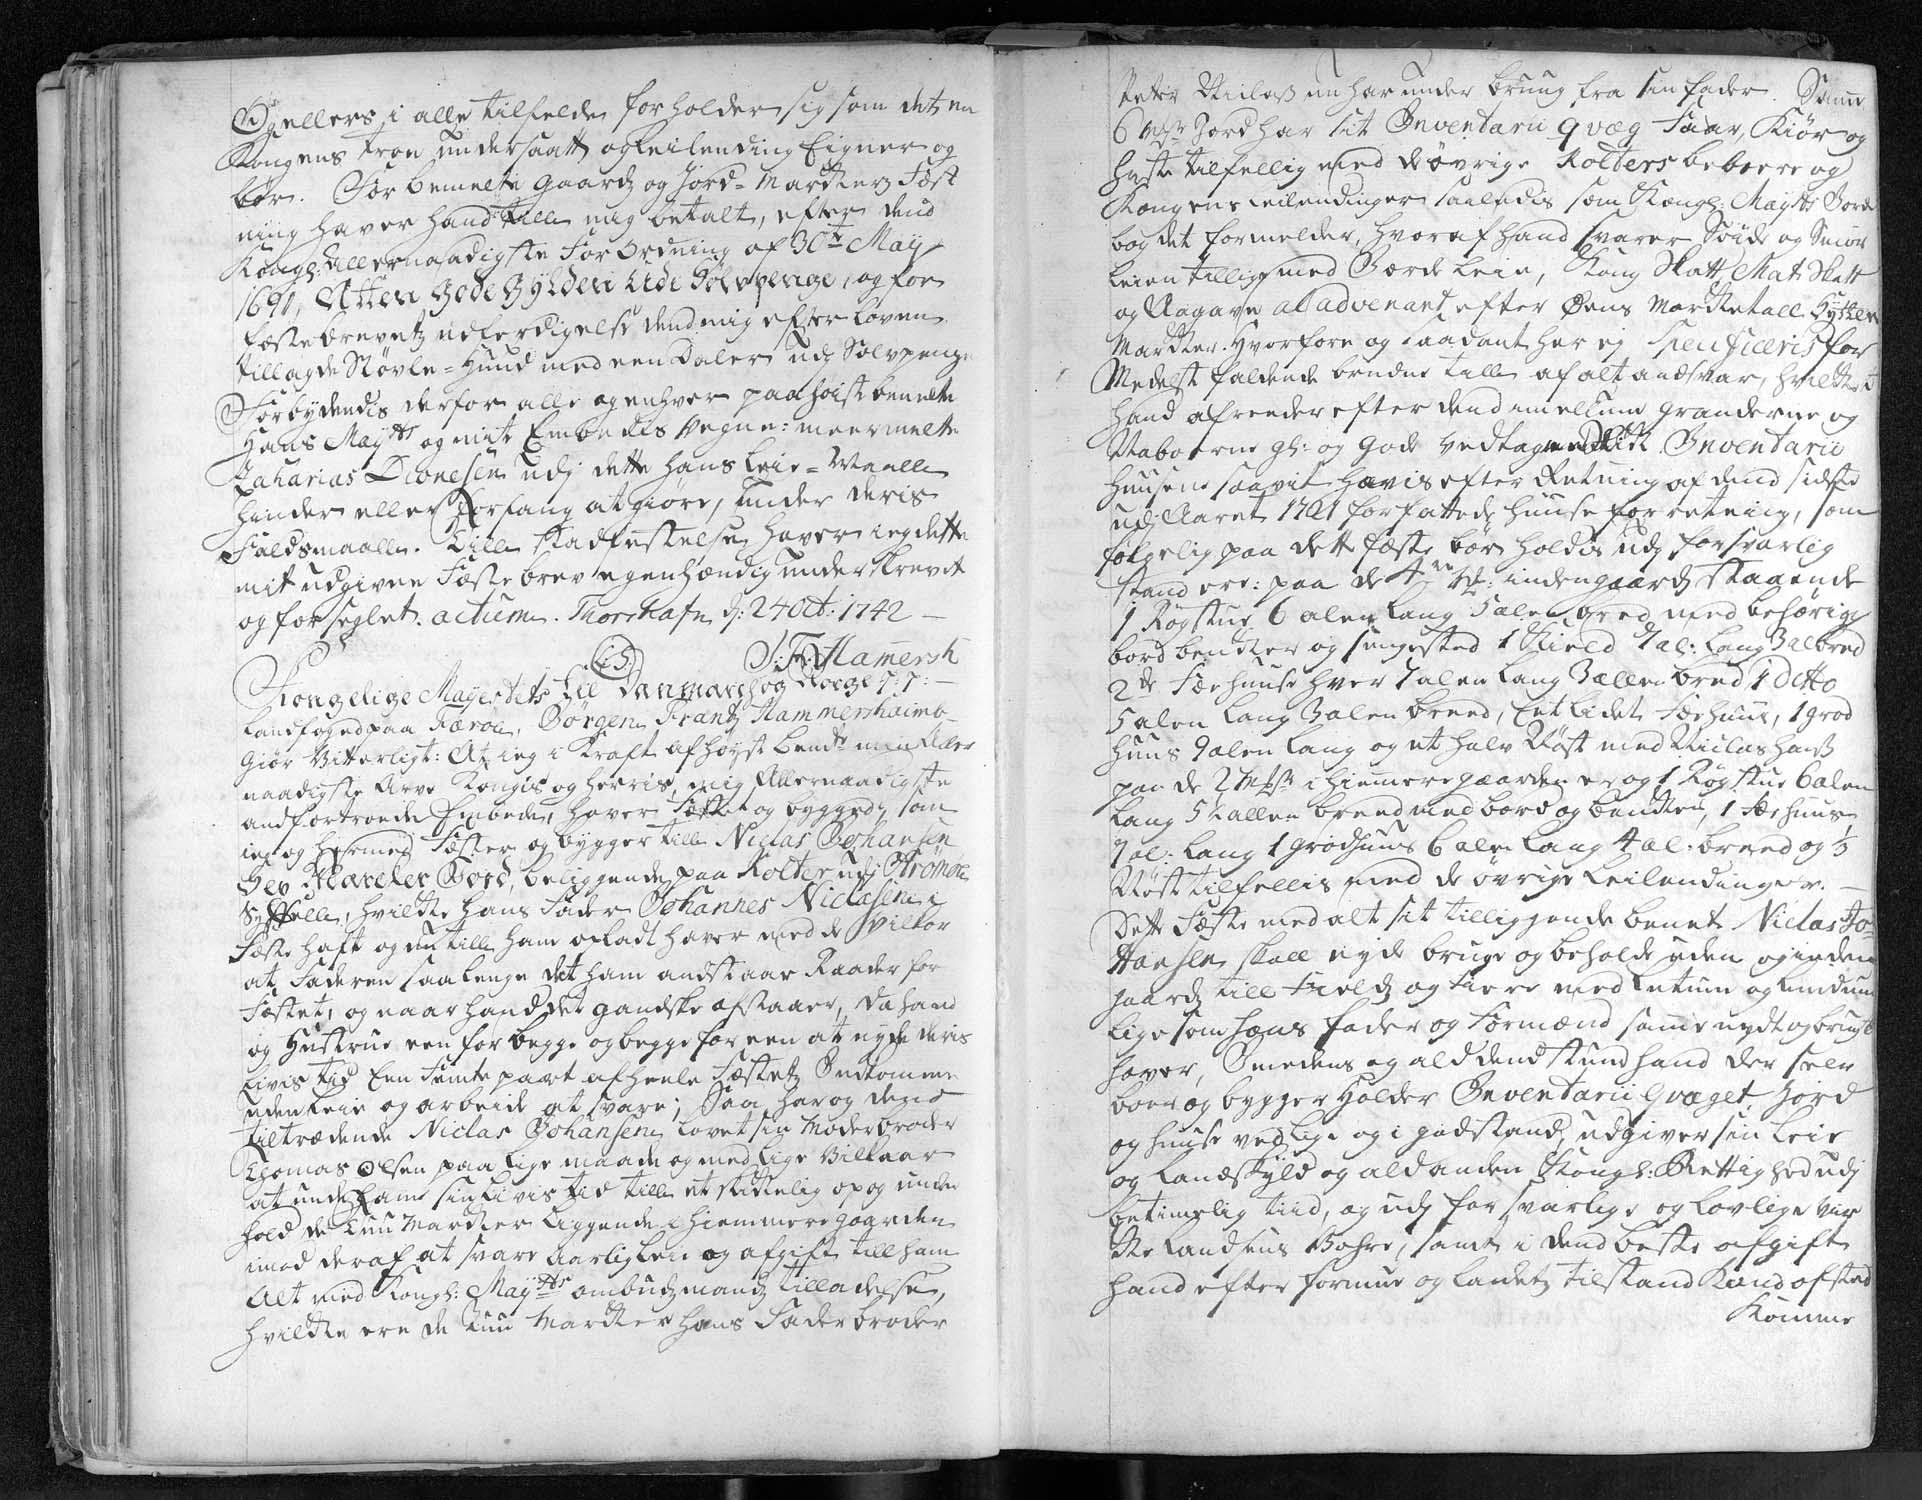 Og ellers i alle tilfelde forholder sig som dets en
Kongens troe undersaatt og Leilending Eigner og
bør. For bemelte gaards og Jord-Marckers Fæst
ning haver hand till mig betalt, efter dend
Kongl: Allernaadigste Forordning af 30te Maÿ
1691, Atten gode gÿlden udi Sølvpenge, og for
fæstebrevets udferdigelse dend mig efter loven
tillagde Støvle-Hund med een Daler udj Sølvpenge
Forbydendis derfor alle og enhver paa høist bemelte
Hans Maÿtts og mit Embedis vegne: meermelte
Zacharias Dionesen udj dette hans Leie-Maalle
hinder eller forfang at giøre, under deris
Faldsmaalle. Till stadfestelse haver ieg dette
mit udgivne Fæstebrev egenhændig underskrevet
og forseglet. actum. Thorshafn d: 24 Oct: 1742
(LS) J: F: Hamersh
Kongelige Mayestets til Danmarch og Norge p: p:
Landfoged paa Færøe, Jørgen Frantz Hammershaimb
Giør Vitterligt: At ieg i Kraft af høyst bemte min Aller
naadigste Arve Kongis og herris, mig Allernaadigste
andfortroede Embede, haver Fæst og bygged, som
ieg og hermed Fæster og bygger till Niclas Johansen
Sex Marcker Jord, beliggende paa Kolter udj Strømøe
Syssell, hvilcke hans Fader Johannes Niclasen i
Fæste haft og nu till ham opladt haver med de Vilkor
at Faderen saalenge det ham andstaar Raader for
Fæstet, og naar hand det gandske afstaaer, da hand
og Hustrue een for begge og begge for een at nyde deris
Livis tid Een Femte part af heele Fæstets Indkomme
uden Leie og arbeide at svare; Saa har og dend
tiltrædende Niclas Johansen lovet sin Moderbroder
Thomas Olsen paa lige maade og med lige Vilkaar
at unde ham sin Livis tid till et skickelig op og under
hold de tuu Marcker liggende i hiemmere gaarden
imod deraf at svare aarlig Leie og afgift till ham
Alt med Kongl: Maÿtts ombudzmandz tilladelse,
hvilcke ere de tuu Marcker hans Faderbroder
Peter Niclaß nu har under brug fra sin fader. Samme
6 Mk Jord har sit Inventarii qvæg Faar, Kiør og
heste tilfellig med de øvrige Kolters beboere og
Kongens Leilendinger saaledis som Kongl: Maÿtts Jorde
bog det formelder, hvoraf hand svarer Søide og Smør
Leien tillige med Jorde Leie, Kong Skatt, Mat Skatt
og Aagave al advenant efter Øens Marcketall
Marcker. Hvorfore og saadant her ej specificeris for
Medelst faldende brudne tall af alt andsvar, hvilcket
hand afreeder efter dend imellum granderne og
Naboerne gl: og gode vedtagne Inventarii
Huusene saavit havis efter Retning af dend sidste
udj Aaret 1721 forfattede huuse forretning, som
følgelig paa dette fæste bør holdis udj forsvarlig
stand ere: paa de 4re Mk: indengaards staaende
1 Røgstue 6 alen lang 5 alen breed med behørige
bord bencker og sengested 1 Kield 7 al: lang 3 al breed
2de Fæhuuse hver 7 alen lang 3 allen bred 1 Ditto
5 alen lang 3 alen breed, Eet lidet Fæhuus, 1 grod
huus 7 alen lang og et halv Nøst med Niclas hanß
paa de 2 Mkr i hiemmere gaarden er og 1 Røgstue 6 alen
lang 5 ½ allen breed med bord og bencker, 1 Fæhuus
7 al: lang 1 grodhuus 6 alen lang 4 al. breed og 1/3
Nøst tilfellis med de øvrige Leilendinger.
Dette Fæste med alt sit tilliggende bemt Niclas Jo
hansen skall nyde bruge og beholde uden og inden
gaards till Field og Fiære med Lutum og Lundum
lige som hans fader og Formænd samme nydt og brugt
haver, Imedens og ald dend stund hand der selv
boer og bygger Holder Inventarii qvæget Jord
og huuse ved lige og i god stand, udgiver sin Leie
og Landskyld og ald anden Kongl: Rettighed udj
betimelig tiid, og udj forsvarlige og lovlige Vir
cke Landsens Vahre, samt i dend beste afgift
hand efter formue og Landets tilstand kand afsted
Komme